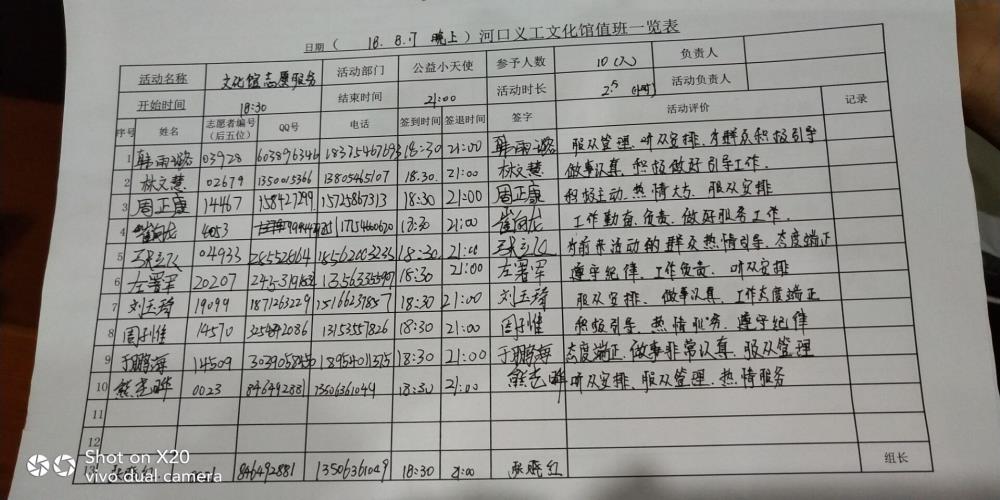 日期（ 18.8.7 晚上 ）河口义工文化馆值班一览表
活动名称 文化馆志愿服务 活动部门 公益小天使 参予人数 10(人) 负责人
开始时间 18:30 结束时间 21:00 活动时长 2.5 (小时) 活动负责人
序号 姓名 志愿者编号（后五位） QQ号 电话 签到时间 签退时间 签字 活动评价 记录
1 韩雨潞 03928 603896346 18375467693 18:30 21:00 韩雨潞 服从管理、听从安排、为群众积极引导
2 林文慧 02679 1350015366 13805465107 18:30 21:00 林文慧 做事认真、积极做好引导工作.
3 周正康 14467 158427299 15725867313 18:30 21:00 周正康 积极主动、热情大方、服从安排
4 4053 17154660620 18:30 21:00 工作勤奋、负责、做好服务工作.
5 04933 28452664 18562003235 18:30 21:00 为前来活动的群众热情引导、态度端正
6 左署军 20207 18:30 21:00 左署军 遵守纪律、工作负责、听从安排
7 刘玉琦 19099 1871263229 15166231857 18:30 21:00 刘玉琦 服从安排、做事认真、工作态度端正
8 周子惟 14570 325492086 13153557826 18:30 21:00 周子惟 积极引导、热情服务、遵守纪律
9 于鹏海 14509 18954011375 18:30 21:00 于鹏海 态度端正、做事非常认真、服从管理
10 0023 846492881 13506361049 18:30 21:00 听从安排、服从管理、热情服务
11
12
13 张晓红 846492881 13506361049 18:30 21:00 张晓红 组长
Shot on X20
vivo dual camera